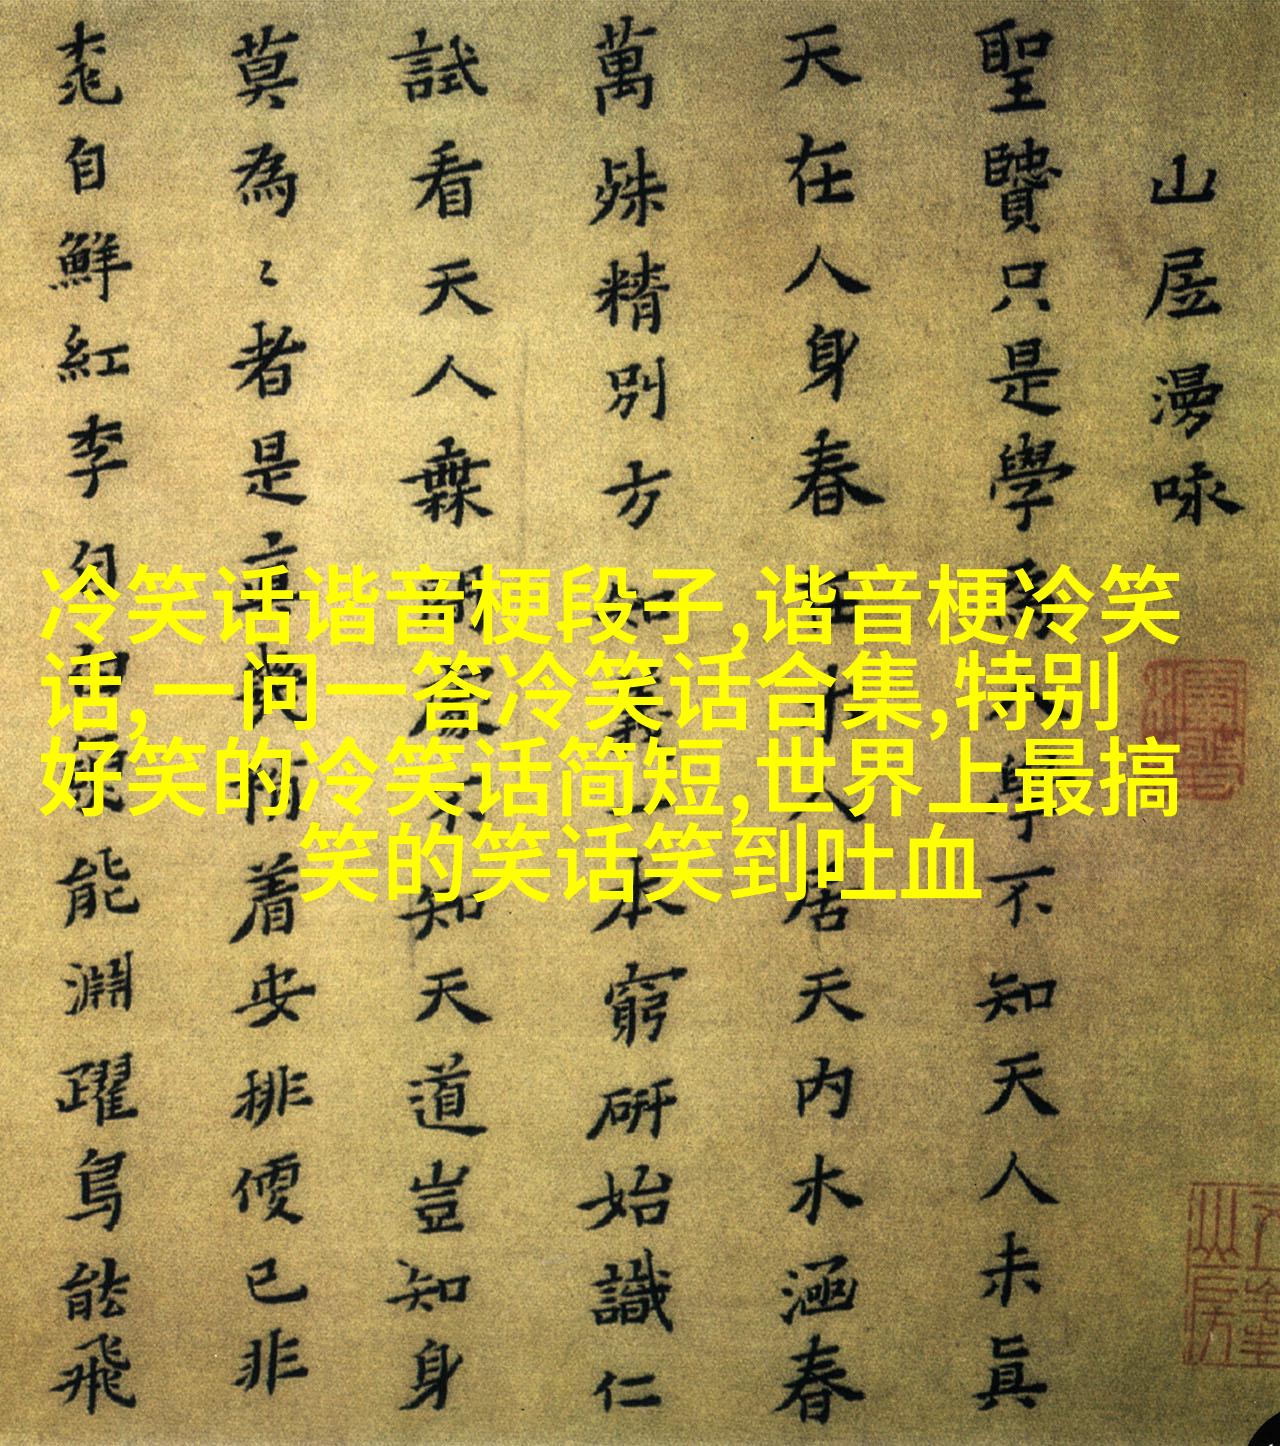 山居漫咏
聖贒只是學爲人學不知天人未眞
天在人身春在木人居天內木涵春
萬殊精別方知義一本窮研始識仁
試看天人無間處不知天道豈知身
莫為〻者是着安排便已非
桃自鮮紅李自白魚能淵躍鳥能飛
冷笑话谐音梗段子,谐音梗冷笑
话,一问一答冷笑话合集,特别
好笑的冷笑话简短,世界上最搞
笑的笑话笑到吐血